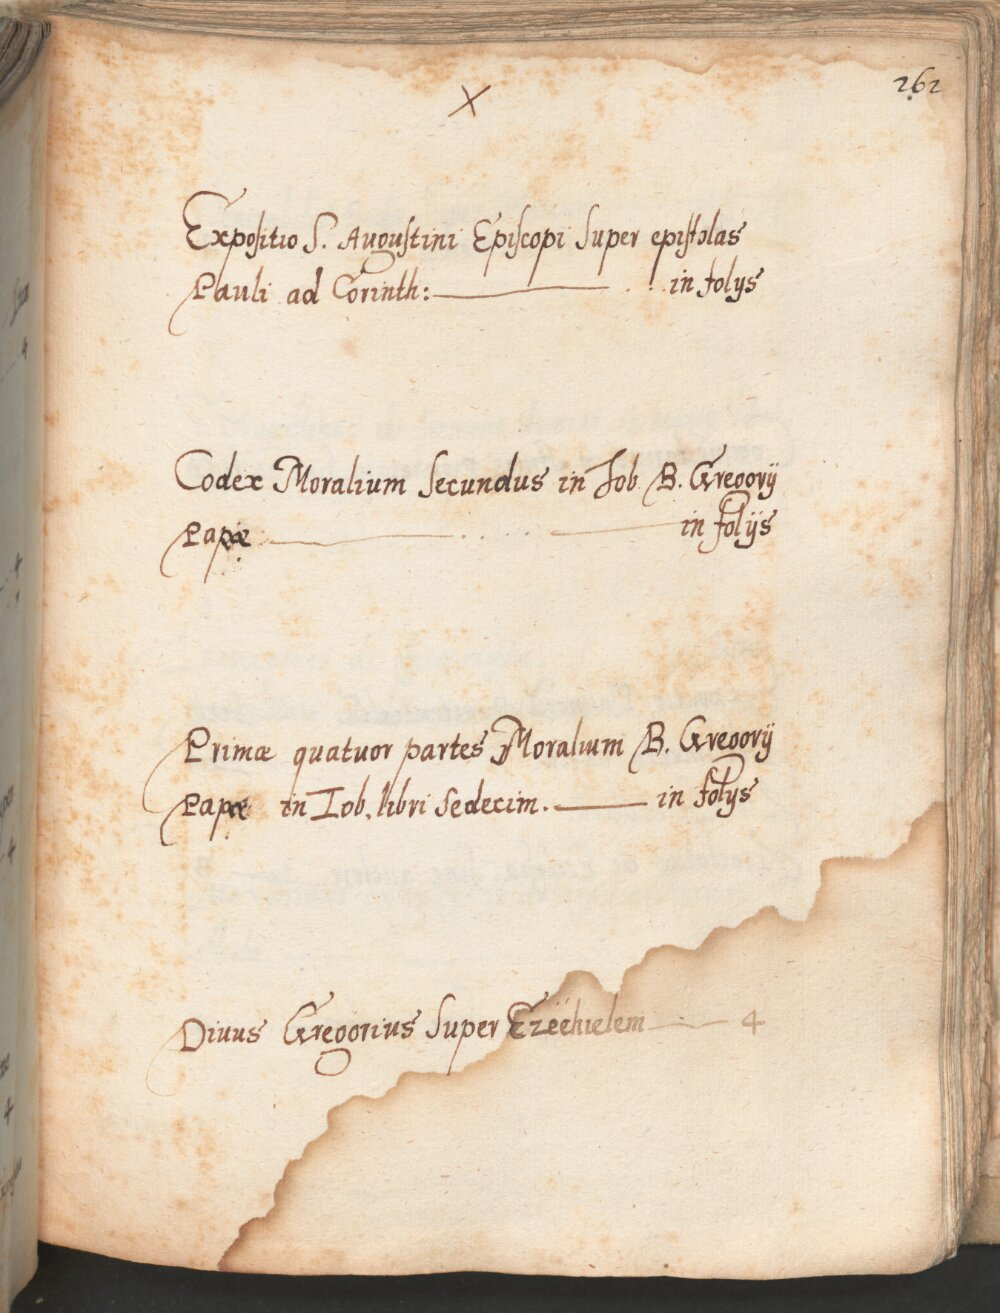 X
262
Expositio S. Augustini Episcopi super epistolas
Pauli ad Corinth: in folys
Codex Moralium Secundus in Iob. B. Gregorij
Papæ in folijs
Primæ quatuor partes Moralium B. Gregorij
Papæ in Iob. libri sedecim. in folys
Diuus Gregorius super Ezëchielem 4